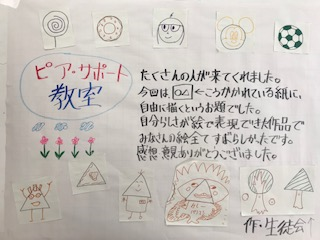 ピア・サポート
教室
たくさんの人が来てくれました。
今回は ○△ ←こうかかれている紙に、
自由に描くというお題でした。
自分らしさが絵で表現できた作品で
みなさんの絵全てすばらしかったです。
感想 意見ありがとうございました。
作・生徒会